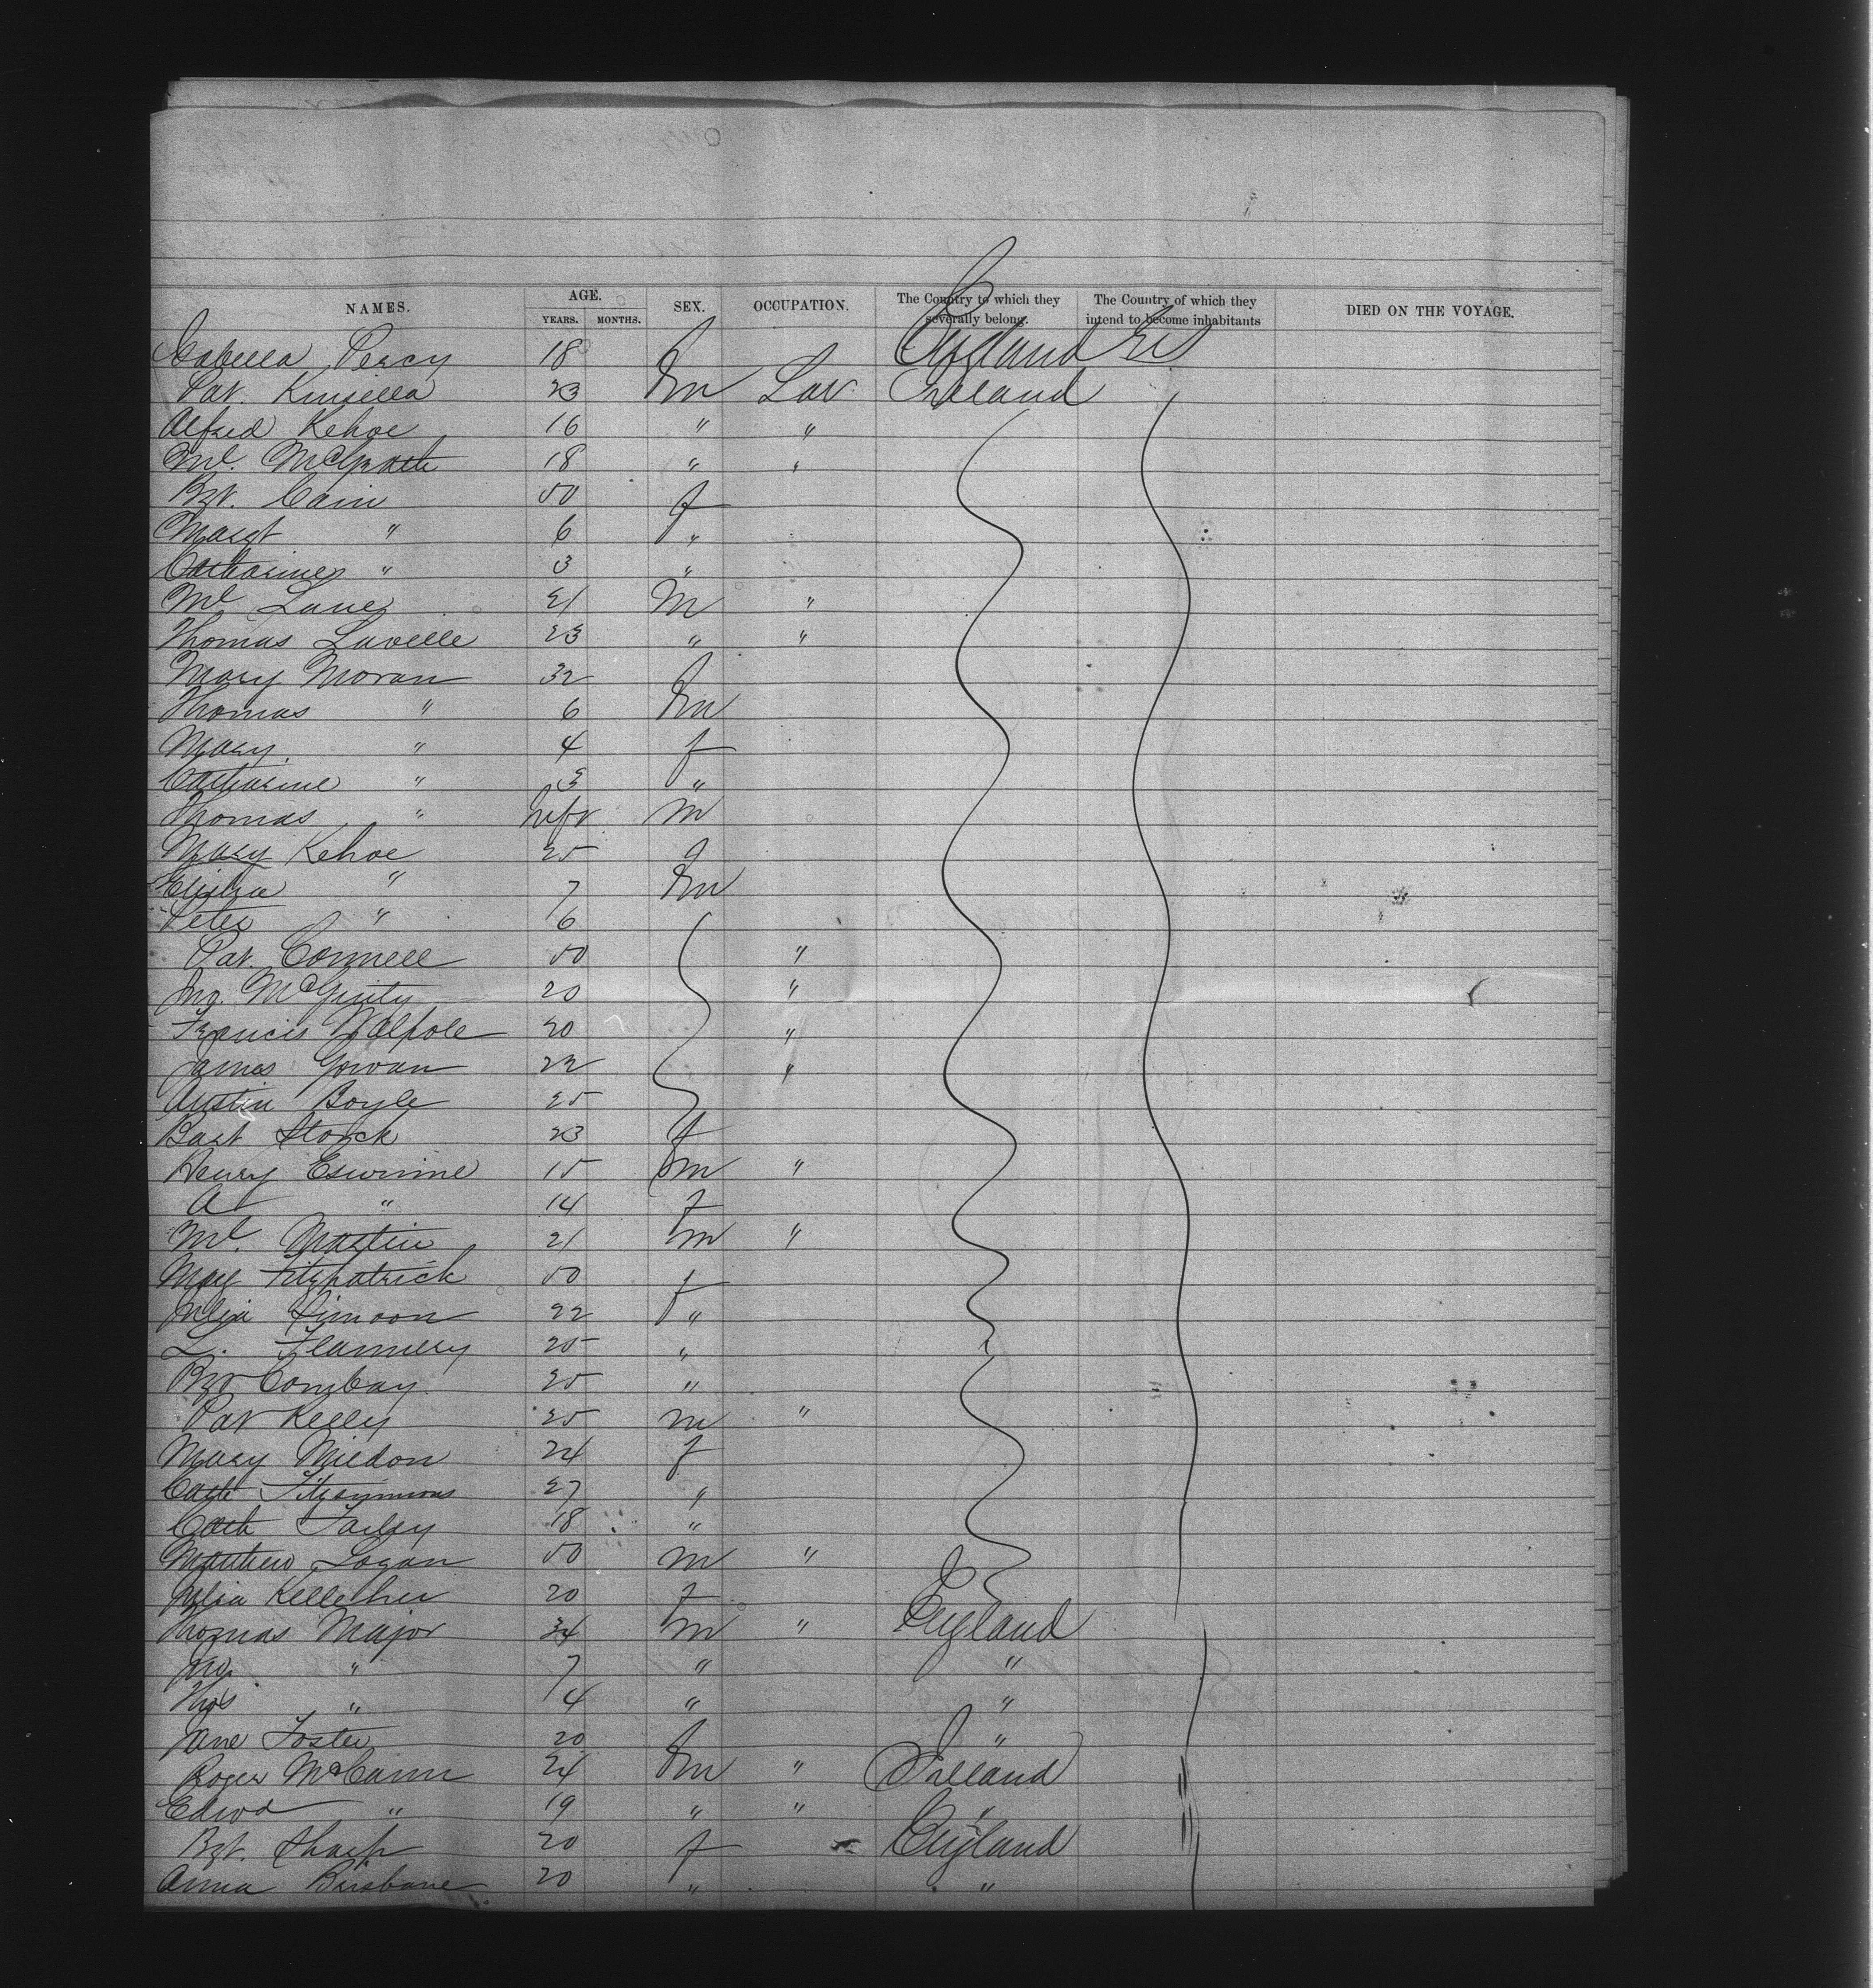 NAMES. AGE. YEARS. MONTHS. SEX. OCCUPATION. The Country to which they severally belong. The Country of which they intend to become inhabitants DIED ON THE VOYAGE.
Isabella Percy 18 England US
Pat. Kinsella 23 m Lab Ireland
Alfred Kehoe 16 " "
Ml. McGrath 18 " "
Bgt. Cain 50 f
Margt " 6 "
Catharine " 3 "
Ml Lane 21 M "
Thomas Lavelle 23 " "
Mary Moran 32 f
Thomas " 6 m
Mary " 4 f
Catharine " 3 "
Thomas " Inft m
Mary Kehoe 25 f
Elisha " 7 m
Peter " 6
Pat. Connell 50 "
Jno. McGinty 20 "
Francis Walpole 20 "
James Gowan 22 "
Austin Boyle 25
Bart Storck 23 f
Henry 15 m "
A " 14 f
Ml. Martin 21 m "
May Fitzpatrick 50 f
Julia 22 "
L. Flannery 25 "
Bgt Conboy 25 "
Pat Kelly 25 m "
Mary 24 f
Cath Fitzsimmons 27 "
Cath Farley 18 "
Matthew Logan 50 m "
Julia Kelleher 20 f
Thomas Major 34 m " England
Jno. " 7 " "
Thos " 4 " "
Jane Foster 20 f "
Roger McCann 24 m " Ireland
Edwd " 19 " " "
Bgt. Sharp 20 f England
Anna Brisbane 20 " "